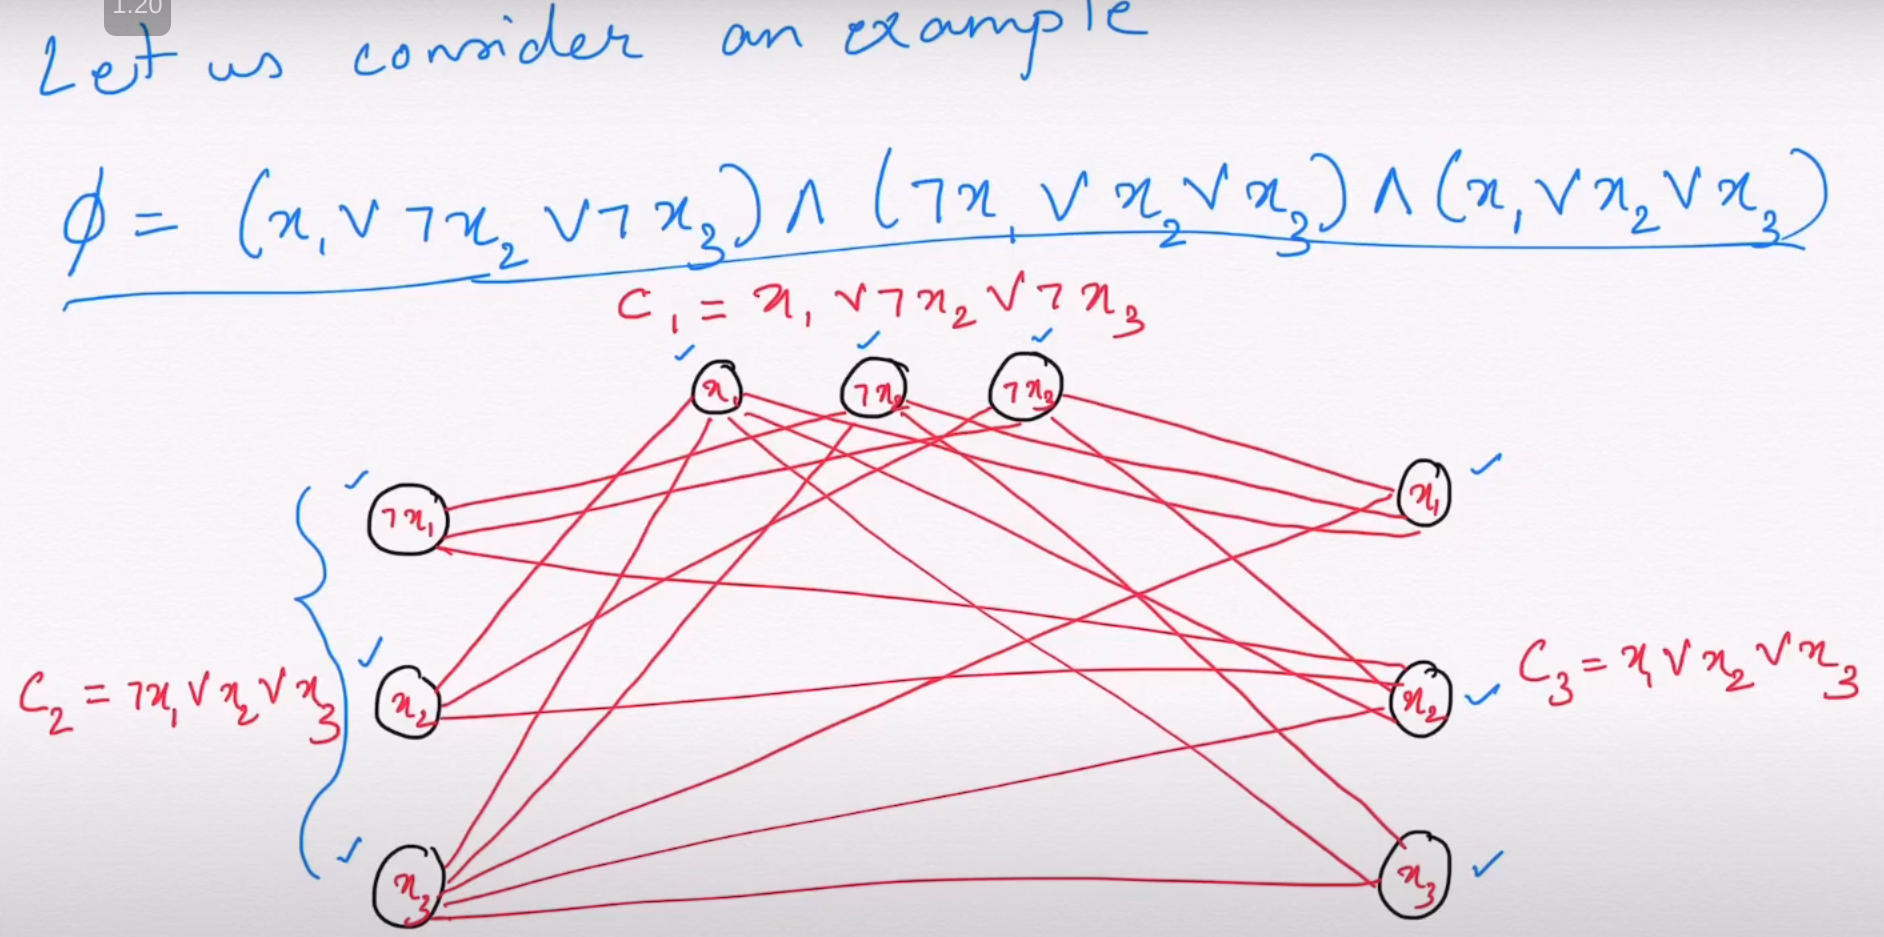 1:20
Let us consider an example
ϕ = (x₁ ∨ ¬x₂ ∨ ¬x₃) ∧ (¬x₁ ∨ x₂ ∨ x₃) ∧ (x₁ ∨ x₂ ∨ x₃)
C₁ = x₁ ∨ ¬x₂ ∨ ¬x₃
x₁ ¬x₂ ¬x₃
¬x₁ x₁
C₂ = ¬x₁ ∨ x₂ ∨ x₃ x₂ x₂ C₃ = x₁ ∨ x₂ ∨ x₃
x₃ x₃